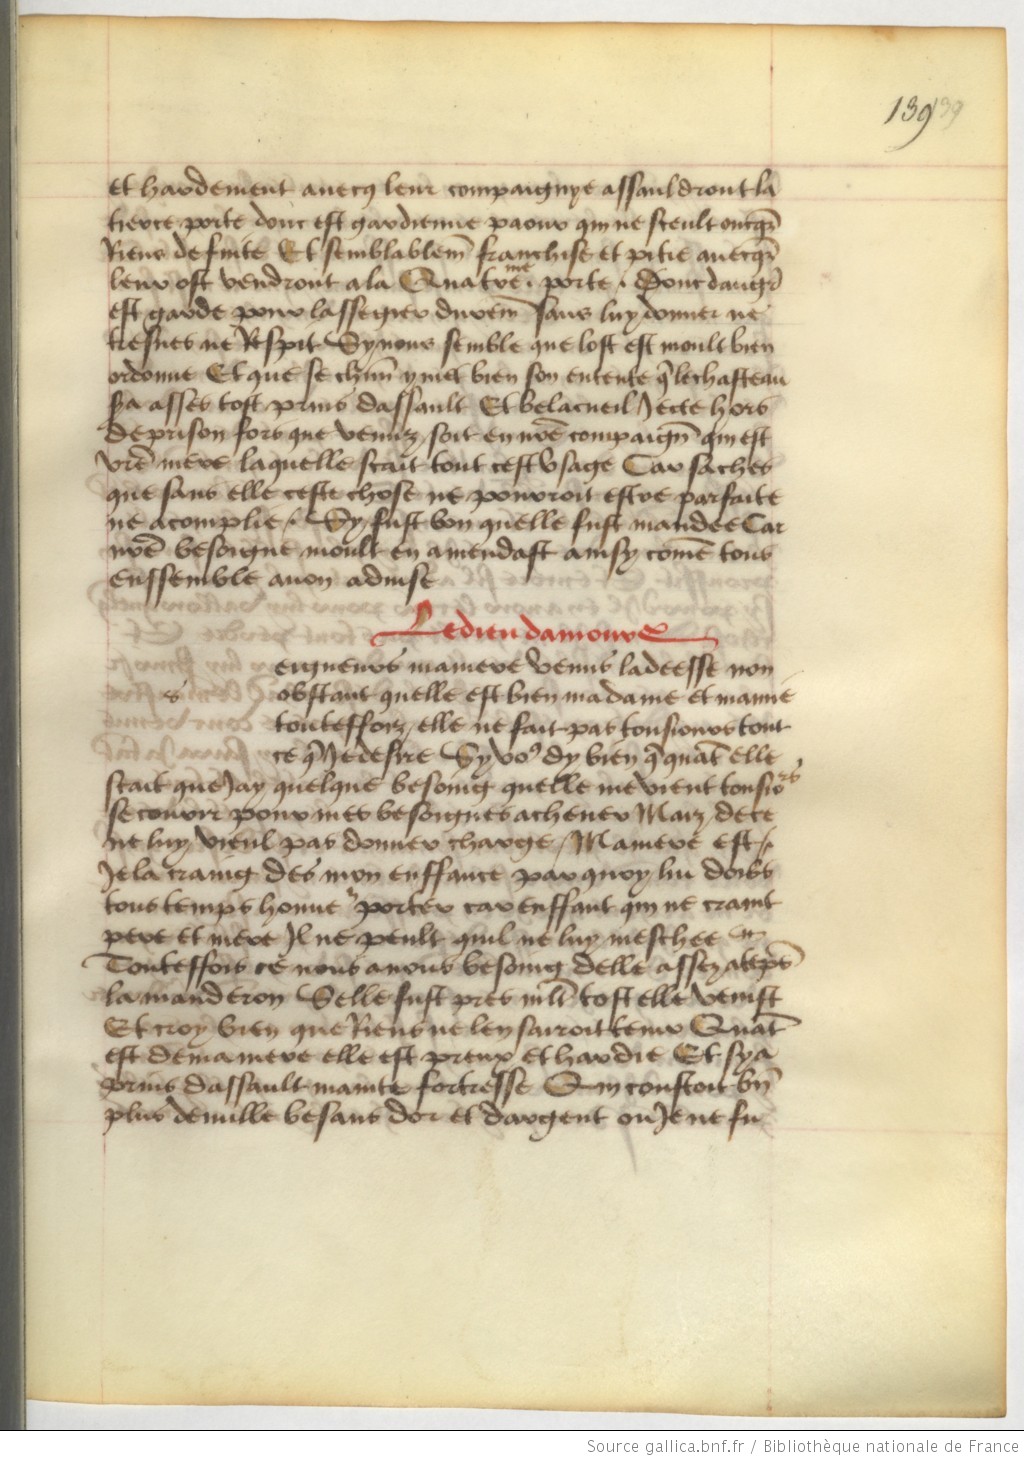 139 139
Et hardement avecq leur compaignye assauldront la
tierce porte donc est gardienne paour qui ne sceult oncqs
Riens de fuite Et semblablem franchise et pitie avecqs
leur ost vendront a la Quatre me porte . Dont dangr
est garde pour lassegier durem sans luy donner ne
tresves ne Respit Sy nous semble que lost est moult bien
ordonne Et que se chun y met bien son entente q le chasteau
sera asses tost prins dassault Et belacueil Jecte hors
de prison fors que venuz soit en nre compaign qui est
vre mere laquelle scait tout cest vsage Car saches
que sans elle ceste chose ne pourroit estre parfaite
ne acomplie /. Sy fust bon quelle fust mandee Car
nre besoigne moult en amendast ainsy come tous
Enssemble avon advise
Le dieu damours
s
eigneurs ma mere venus la deesse non
obstant quelle est bien ma dame et mamie
touteffoiz elle ne fait pas tousiours tout
ce q Je desire Sy vos dy bien q quat elle
scait que Jay quelque besoing quelle me vient tousiors
secourir pour mes besoignes achever Maiz de ce
ne luy vieul pas donner charge / Ma mere est /.
Je la craing des mon enffance par quoy lui doibs
tous temps honner porter car enffant qui ne craint
pere et mere Jl ne peult quil ne luy meschee
Touteffois ce nous avons besoing delle assez a teps
la manderon Selle fust pres mlt tost elle venist
Et croy bien que Riens ne len sairoit tenir Quat
est de ma mere elle est preux et hardie Et sy a
prins dassault mainte fortresse Qui coustoit bn
plus de mille besans dor et dargent ou Je ne fu
Source gallica.bnf.fr / Bibliothèque nationale de France